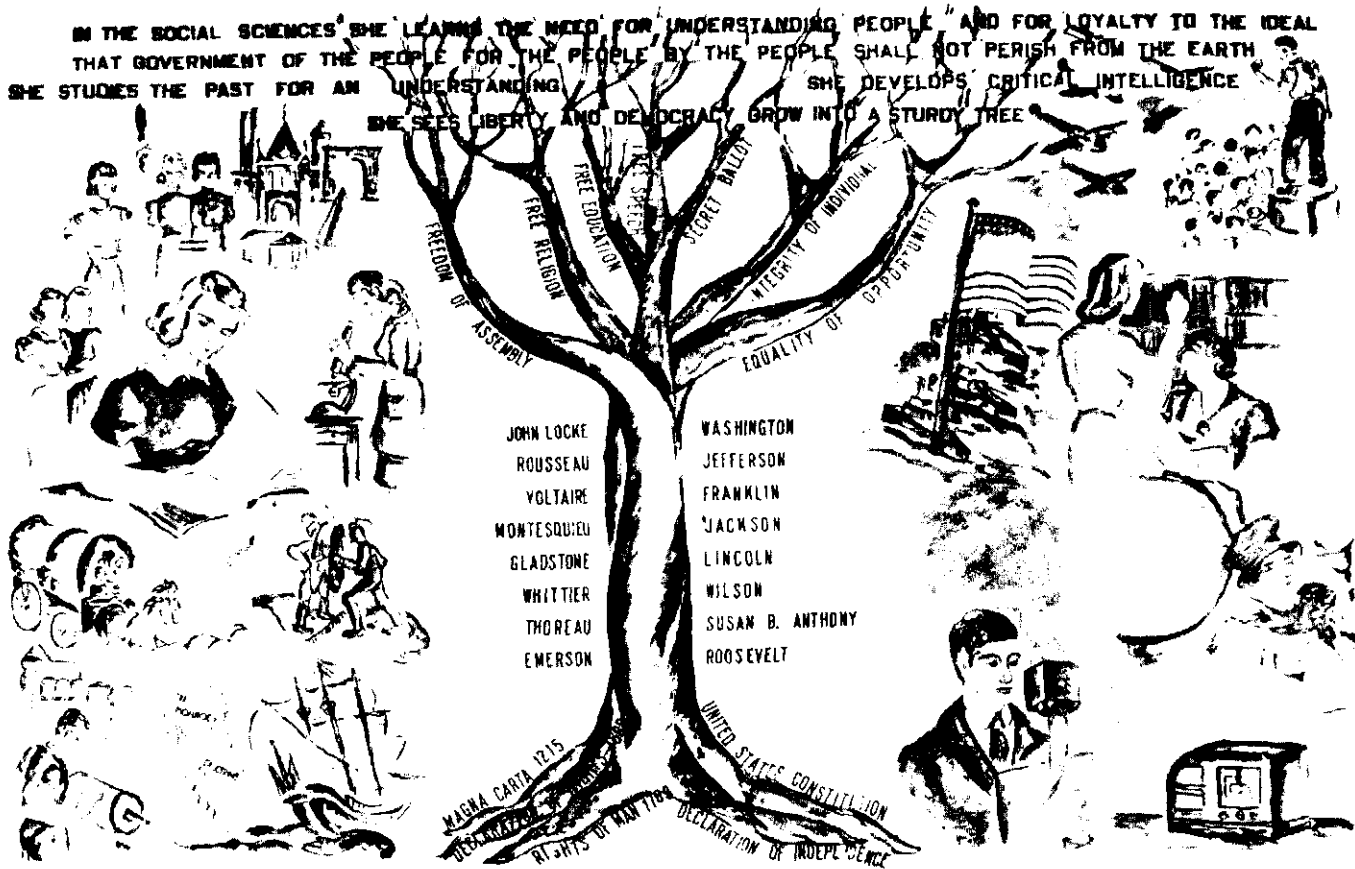 IN THE SOCIAL SCIENCES "SHE LEARNS THE NEED FOR UNDERSTANDING PEOPLE," AND FOR LOYALTY TO THE IDEAL
THAT GOVERNMENT OF THE PEOPLE FOR THE PEOPLE BY THE PEOPLE SHALL NOT PERISH FROM THE EARTH
SHE STUDIES THE PAST FOR AN UNDERSTANDING SHE DEVELOPS CRITICAL INTELLIGENCE
SHE SEES LIBERTY AND DEMOCRACY GROW INTO A STURDY TREE
FREEDOM OF ASSEMBLY
FREE RELIGION
FREE EDUCATION
FREE SPEECH
SECRET BALLOT
INTEGRITY OF INDIVIDUAL
EQUALITY OF OPPORTUNITY
JOHN LOCKE
ROUSSEAU
VOLTAIRE
MONTESQUIEU
GLADSTONE
WHITTIER
THOREAU
EMERSON
WASHINGTON
JEFFERSON
FRANKLIN
JACKSON
LINCOLN
WILSON
SUSAN B. ANTHONY
ROOSEVELT
MONROE
MAGNA CARTA 1215
DECLARATION
RIGHTS OF MAN 1789
UNITED STATES CONSTITUTION
DECLARATION OF INDEPENDENCE